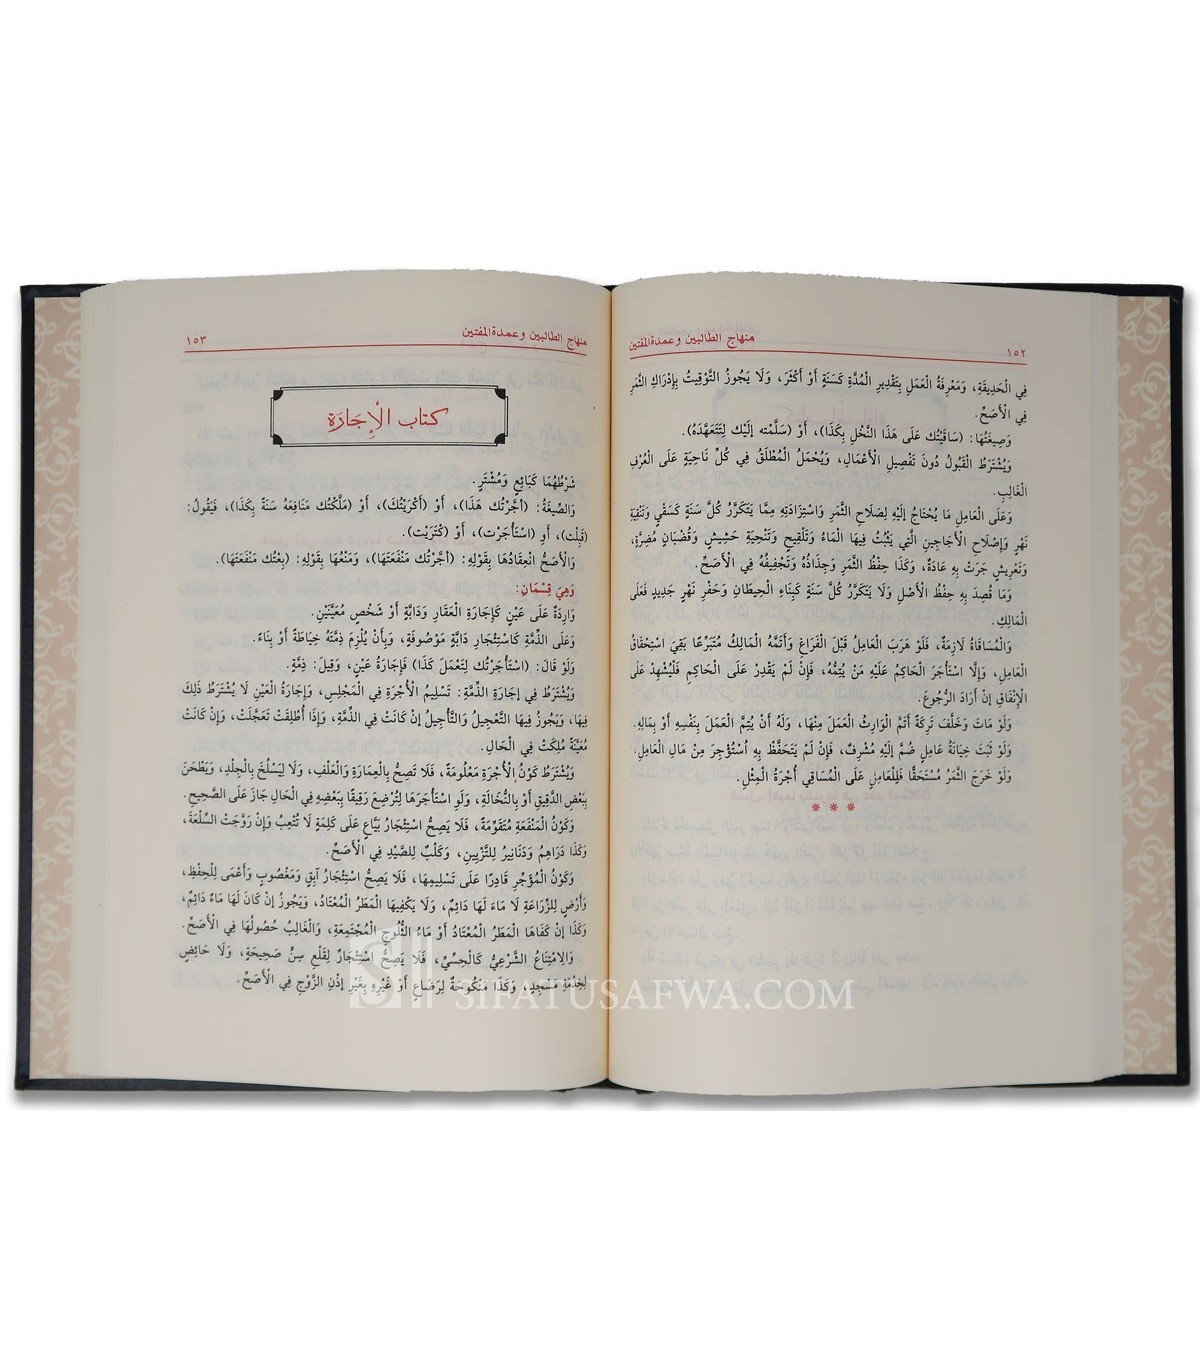 منهاج الطالبين وعمدة المفتين
١٥٢
فِي الْحَدِيقَةِ، وَمَعْرِفَةُ الْعَمَلِ بِتَقْدِيرِ الْمُدَّةِ كَسَنَةٍ أَوْ أَكْثَرَ، وَلَا يَجُوزُ التَّوْقِيتُ بِإِدْرَاكِ الثَّمَرِ
فِي الْأَصَحِّ.
وَصِيغَتُهَا: (سَاقَيْتُك عَلَى هَذَا النَّخْلِ بِكَذَا)، أَوْ (سَلَّمْته إلَيْك لِتَتَعَهَّدَهُ).
وَيُشْتَرَطُ الْقَبُولُ دُونَ تَفْصِيلِ الْأَعْمَالِ، وَيُحْمَلُ الْمُطْلَقُ فِي كُلِّ نَاحِيَةٍ عَلَى الْعُرْفِ
الْغَالِبِ.
وَعَلَى الْعَامِلِ مَا يُحْتَاجُ إلَيْهِ لِصَلَاحِ الثَّمَرِ وَاسْتِزَادَتِهِ مِمَّا يَتَكَرَّرُ كُلَّ سَنَةٍ كَسَقْيٍ وَتَنْقِيَةِ
نَهْرٍ وَإِصْلَاحِ الْأَجَاجِينِ الَّتِي يَثْبُتُ فِيهَا الْمَاءُ وَتَلْقِيحٍ وَتَنْحِيَةِ حَشِيشٍ وَقُضْبَانٍ مُضِرَّةٍ،
وَتَعْرِيشٍ جَرَتْ بِهِ عَادَةٌ، وَكَذَا حِفْظُ الثَّمَرِ وَجِذَاذُهُ وَتَجْفِيفُهُ فِي الْأَصَحِّ.
وَمَا قُصِدَ بِهِ حِفْظُ الْأَصْلِ وَلَا يَتَكَرَّرُ كُلَّ سَنَةٍ كَبِنَاءِ الْحِيطَانِ وَحَفْرِ نَهْرٍ جَدِيدٍ فَعَلَى
الْمَالِكِ.
وَالْمُسَاقَاةُ لَازِمَةٌ، فَلَوْ هَرَبَ الْعَامِلُ قَبْلَ الْفَرَاغِ وَأَتَمَّهُ الْمَالِكُ مُتَبَرِّعًا بَقِيَ اسْتِحْقَاقُ
الْعَامِلِ، وَإِلَّا اسْتَأْجَرَ الْحَاكِمُ عَلَيْهِ مَنْ يُتِمُّهُ، فَإِنْ لَمْ يَقْدِرْ عَلَى الْحَاكِمِ فَلْيُشْهِدْ عَلَى
الْإِنْفَاقِ إنْ أَرَادَ الرُّجُوعَ.
وَلَوْ مَاتَ وَخَلَّفَ تَرِكَةً أَتَمَّ الْوَارِثُ الْعَمَلَ مِنْهَا، وَلَهُ أَنْ يُتِمَّ الْعَمَلَ بِنَفْسِهِ أَوْ بِمَالِهِ.
وَلَوْ ثَبَتَ خِيَانَةُ عَامِلٍ ضُمَّ إلَيْهِ مُشْرِفٌ، فَإِنْ لَمْ يَتَحَفَّظْ بِهِ اُسْتُؤْجِرَ مِنْ مَالِ الْعَامِلِ.
وَلَوْ خَرَجَ الثَّمَرُ مُسْتَحَقًّا فَلِلْعَامِلِ عَلَى الْمُسَاقِي أُجْرَةُ الْمِثْلِ.
* * *
منهاج الطالبين وعمدة المفتين
١٥٣
كتاب الْإِجَارَة
شَرْطُهُمَا كَبَائِعٍ وَمُشْتَرٍ.
وَالصِّيغَةُ: (أَجَّرْتُك هَذَا)، أَوْ (أَكْرَيْتُكَ)، أَوْ (مَلَّكْتُك مَنَافِعَهُ سَنَةً بِكَذَا)، فَيَقُولُ:
(قَبِلْت)، أَوِ (اسْتَأْجَرْت)، أَوْ (كْتَرَيْت).
وَالْأَصَحُّ انْعِقَادُهَا بِقَوْلِهِ: (أَجَّرْتُك مَنْفَعَتَهَا)، وَمَنْعُهَا بِقَوْلِهِ: (بِعْتُك مَنْفَعَتَهَا).
وَهِيَ قِسْمَانِ:
وَارِدَةٌ عَلَى عَيْنٍ كَإِجَارَةِ الْعَقَارِ وَدَابَّةٍ أَوْ شَخْصٍ مُعَيَّنَيْنِ.
وَعَلَى الذِّمَّةِ كَاسْتِئْجَارِ دَابَّةٍ مَوْصُوفَةٍ، وَبِأَنْ يُلْزِمَ ذِمَّتَهُ خِيَاطَةً أَوْ بِنَاءً.
وَلَوْ قَالَ: (اسْتَأْجَرْتُك لِتَعْمَلَ كَذَا) فَإِجَارَةُ عَيْنٍ، وَقِيلَ: ذِمَّةٍ.
وَيُشْتَرَطُ فِي إجَارَةِ الذِّمَّةِ: تَسْلِيمُ الْأُجْرَةِ فِي الْمَجْلِسِ، وَإِجَارَةُ الْعَيْنِ لَا يُشْتَرَطُ ذَلِكَ
فِيهَا، وَيَجُوزُ فِيهَا التَّعْجِيلُ وَالتَّأْجِيلُ إنْ كَانَتْ فِي الذِّمَّةِ، وَإِذَا أُطْلِقَتْ تَعَجَّلَتْ، وَإِنْ كَانَتْ
مُعَيَّنَةً مُلِكَتْ فِي الْحَالِ.
وَيُشْتَرَطُ كَوْنُ الْأُجْرَةِ مَعْلُومَةً، فَلَا تَصِحُّ بِالْعِمَارَةِ وَالْعَلَفِ، وَلَا لِيَسْلَخَ بِالْجِلْدِ، وَيَطْحَنَ
بِبَعْضِ الدَّقِيقِ أَوْ بِالنُّخَالَةِ، وَلَوِ اسْتَأْجَرَهَا لِتُرْضِعَ رَقِيقًا بِبَعْضِهِ فِي الْحَالِ جَازَ عَلَى الصَّحِيحِ.
وَكَوْنُ الْمَنْفَعَةِ مُتَقَوِّمَةً، فَلَا يَصِحُّ اسْتِئْجَارُ بَيَّاعٍ عَلَى كَلِمَةٍ لَا تُتْعِبُ وَإِنْ رَوَّجَتْ السِّلْعَةَ،
وَكَذَا دَرَاهِمُ وَدَنَانِيرُ لِلتَّزْيِينِ، وَكَلْبٌ لِلصَّيْدِ فِي الْأَصَحِّ.
وَكَوْنُ الْمُؤَجِّرِ قَادِرًا عَلَى تَسْلِيمِهَا، فَلَا يَصِحُّ اسْتِئْجَارُ آبِقٍ وَمَغْصُوبٍ وَأَعْمَى لِلْحِفْظِ،
وَأَرْضٍ لِلزِّرَاعَةِ لَا مَاءَ لَهَا دَائِمٌ، وَلَا يَكْفِيهَا الْمَطَرُ الْمُعْتَادُ، وَيَجُوزُ إنْ كَانَ لَهَا مَاءٌ دَائِمٌ،
وَكَذَا إنْ كَفَاهَا الْمَطَرُ الْمُعْتَادُ أَوْ مَاءُ الثُّلُوجِ الْمُجْتَمِعَةِ، وَالْغَالِبُ حُصُولُهَا فِي الْأَصَحِّ.
وَالِامْتِنَاعُ الشَّرْعِيُّ كَالْحِسِّيِّ، فَلَا يَصِحُّ اسْتِئْجَارٌ لِقَلْعِ سِنٍّ صَحِيحَةٍ، وَلَا حَائِضٍ
لِخِدْمَةِ مَسْجِدٍ، وَكَذَا مَنْكُوحَةٌ لِرَضَاعٍ أَوْ غَيْرِهِ بِغَيْرِ إذْنِ الزَّوْجِ فِي الْأَصَحِّ.
SIFATUSAFWA.COM